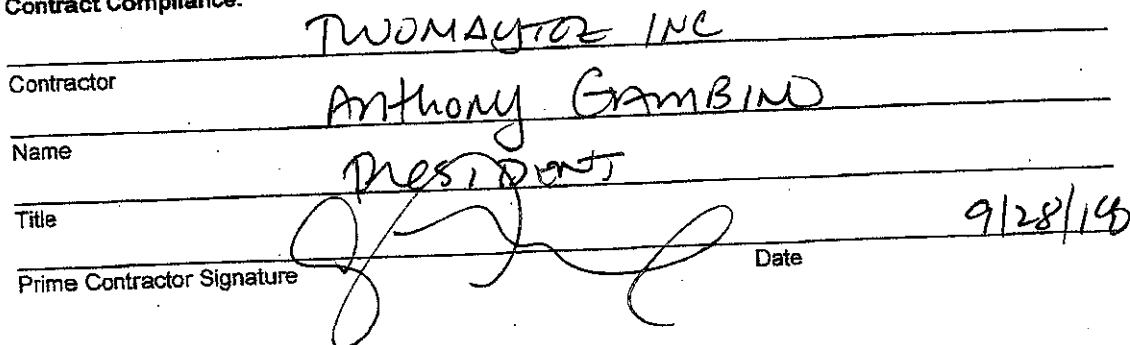 Contract Compliance:
TWOMAYTOZ INC
Contractor
Anthony GAMBINO
Name
PRESIDENT
Title
9/28/18
Prime Contractor Signature Date